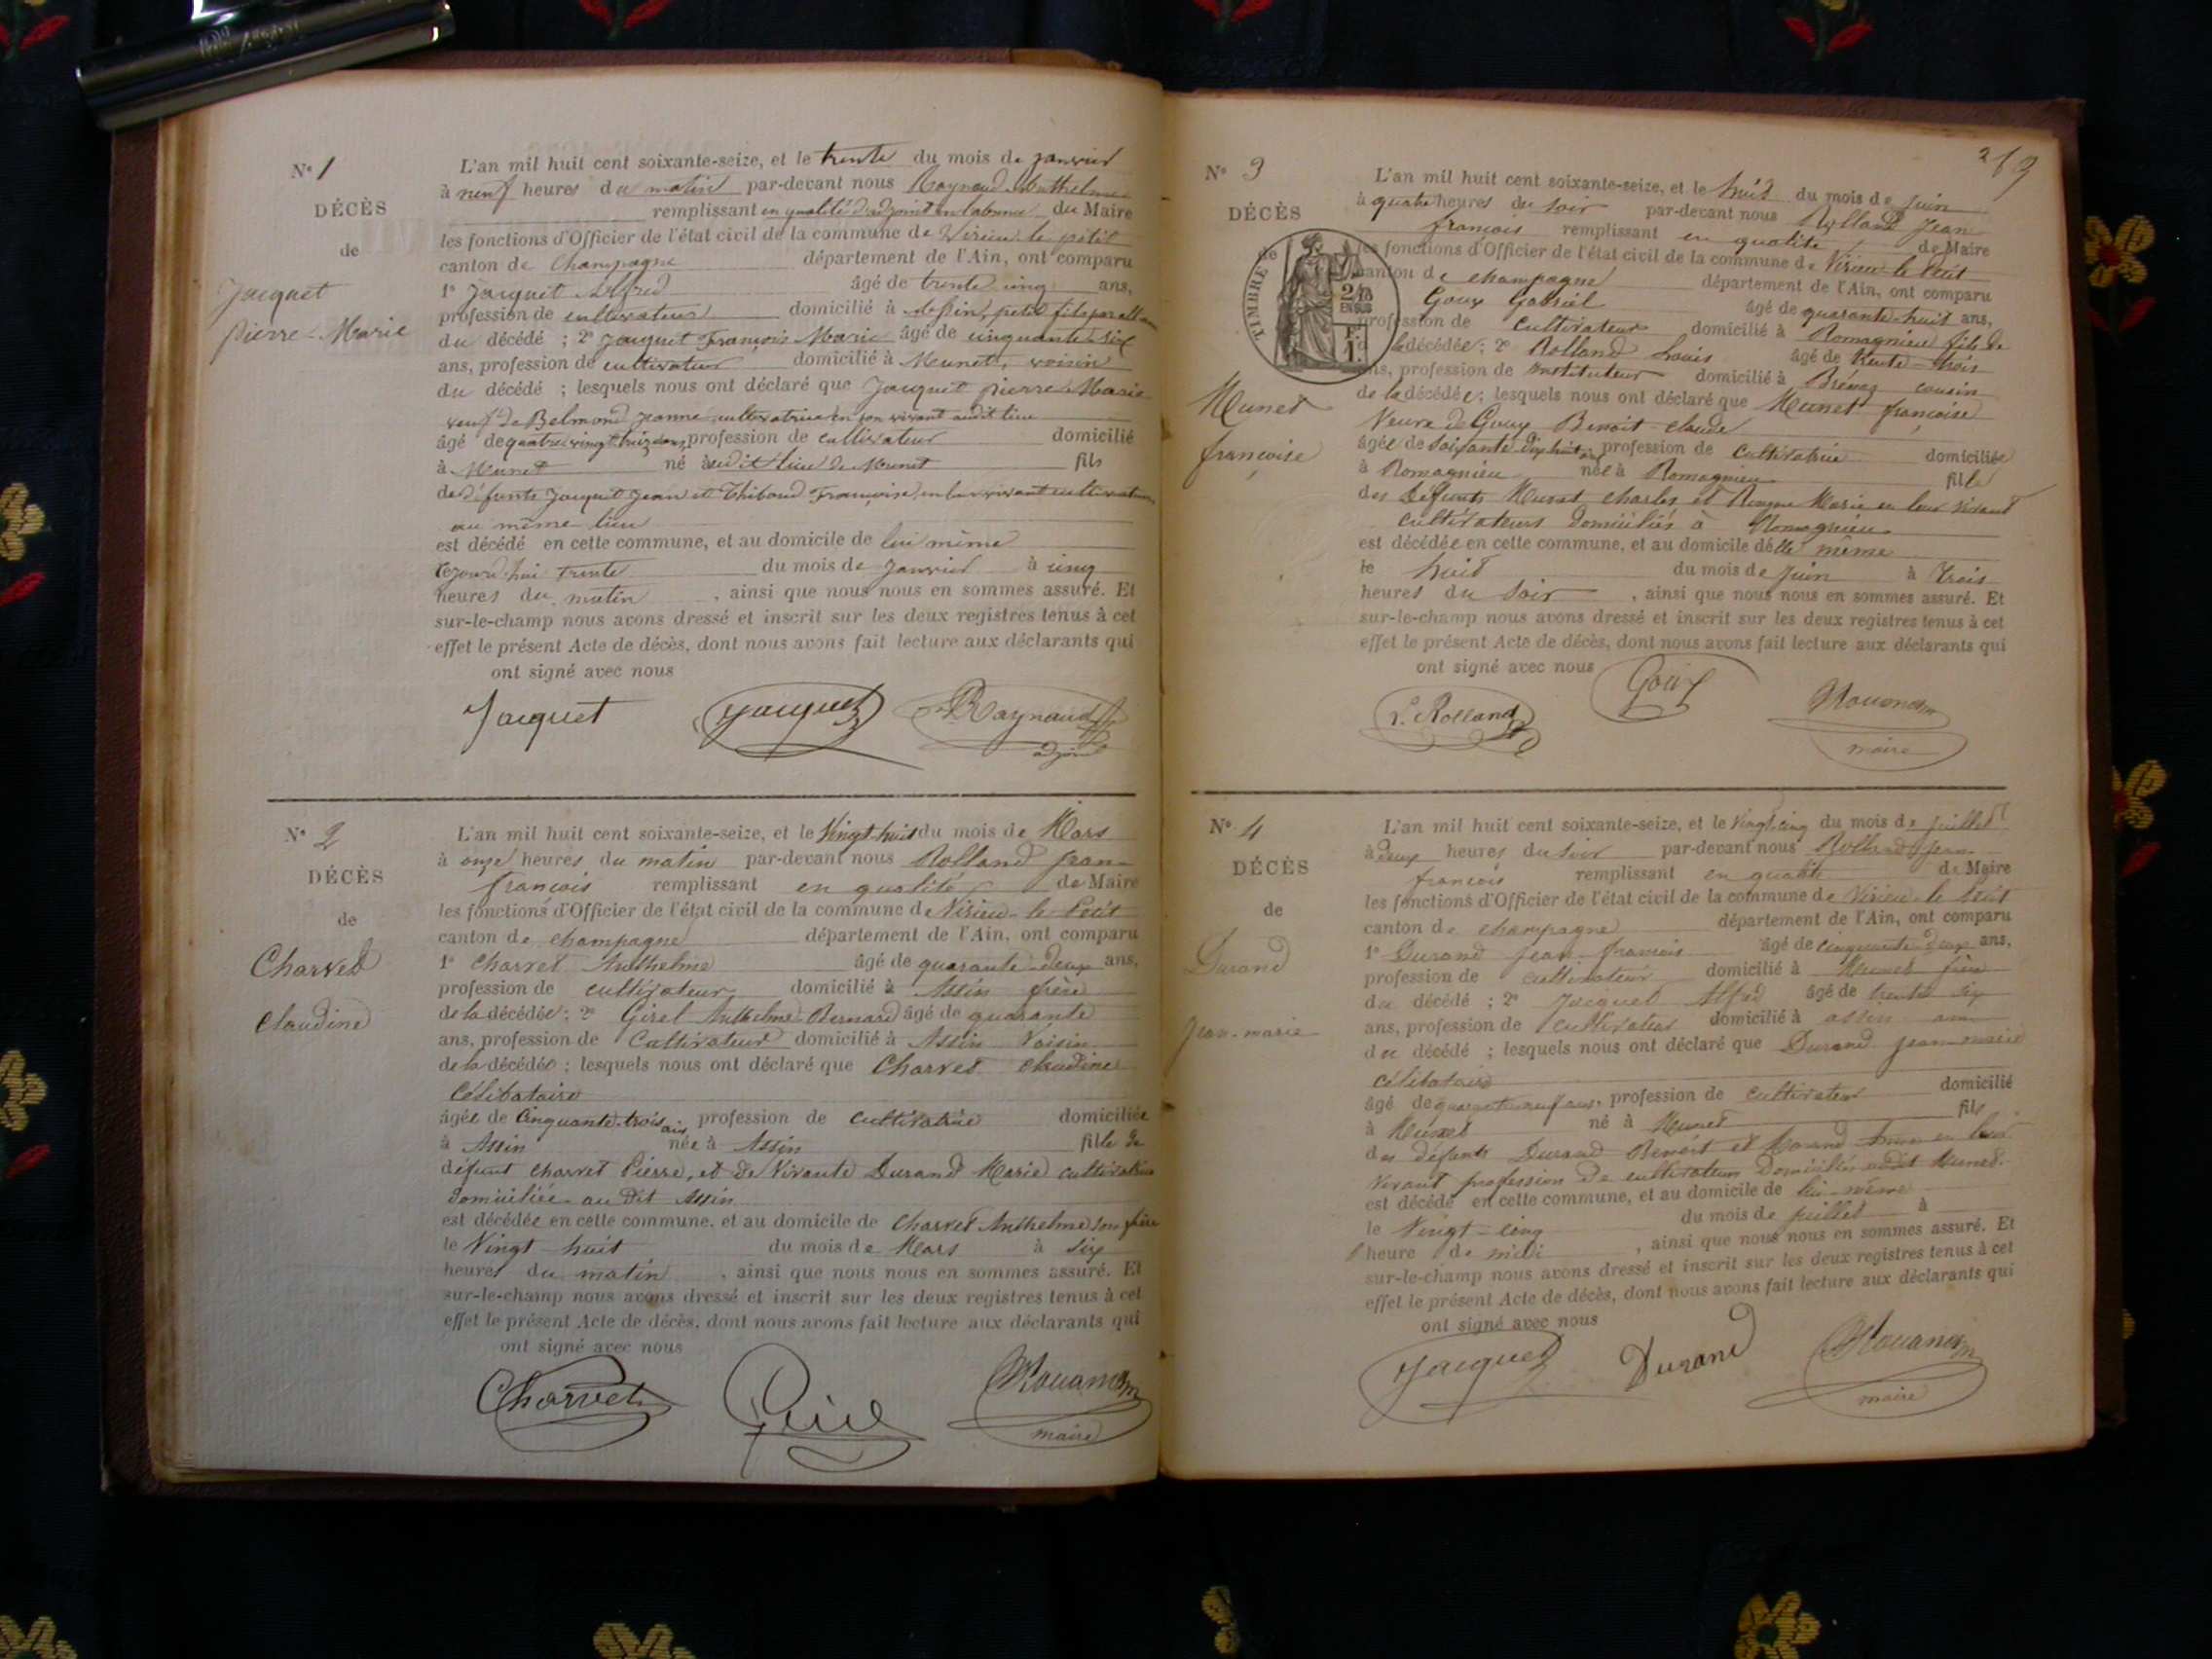 N° 1
DÉCÈS
de
Jacquet
Pierre-Marie
L'an mil huit cent soixante-seize, et le trente du mois de janvier
à neuf heures du matin par-devant nous Raynaud Anthelme
remplissant en qualité d'adjoint en l'absence du Maire
les fonctions d'Officier de l'état civil de la commune de Virieu-le-petit
canton de Champagne département de l'Ain, ont comparu
1° Jacquet Alfred âgé de trente cinq ans,
profession de cultivateur domicilié à Assin, petit fils par alliance
du décédé ; 2° Jacquet François Marie âgé de cinquante six
ans, profession de cultivateur domicilié à Munet, voisin
du décédé ; lesquels nous ont déclaré que Jacquet pierre-Marie
veuf de Belmond Jeanne cultivatrice en son vivant audit lieu
âgé de quatre vingt treize ans, profession de cultivateur domicilié
à Munet né audit lieu de Munet fils
de défunts Jacquet Jean et Thibaud Françoise, en leur vivant cultivateurs
au même lieu
est décédé en cette commune, et au domicile de lui même
cejourd'hui trente du mois de Janvier à cinq
heures du matin, ainsi que nous nous en sommes assuré. Et
sur-le-champ nous avons dressé et inscrit sur les deux registres tenus à cet
effet le présent Acte de décès, dont nous avons fait lecture aux déclarants qui
ont signé avec nous
Jacquet Jacquet Raynaud
adjoint
N° 2
DÉCÈS
de
Charvet
Claudine
L'an mil huit cent soixante-seize, et le Vingt-huit du mois de Mars
à onze heures du matin par-devant nous Rolland Jean
françois remplissant en qualité de Maire
les fonctions d'Officier de l'état civil de la commune de Virieu-le-Petit
canton de champagne département de l'Ain, ont comparu
1° Charvet Anthelme âgé de quarante-deux ans,
profession de cultivateur domicilié à Assin frère
de la décédée ; 2° Girel Anthelme-Bernard âgé de quarante
ans, profession de Cultivateur domicilié à Assin Voisin
de la décédée ; lesquels nous ont déclaré que Charvet Claudine
Célibataire
âgée de Cinquante-trois ans profession de cultivatrice domiciliée
à Assin née à Assin fille de
défunt Charvet Pierre, et de Vivante Durand Marie cultivatrice
domiciliée au dit Assin
est décédée en cette commune, et au domicile de Charvet Anthelme son frère
le Vingt-huit du mois de Mars à six
heures du matin, ainsi que nous nous en sommes assuré. Et
sur-le-champ nous avons dressé et inscrit sur les deux registres tenus à cet
effet le présent Acte de décès, dont nous avons fait lecture aux déclarants qui
ont signé avec nous
Charvet
maire
219
N° 3
DÉCÈS
de
TIMBRE
Munet
françoise
L'an mil huit cent soixante-seize, et le huit du mois de juin
à quatre heures du soir par-devant nous Rolland Jean
françois remplissant en qualité de Maire
les fonctions d'Officier de l'état civil de la commune de Virieu-le-Petit
canton de champagne département de l'Ain, ont comparu
Goux Gabriel âgé de quarante-huit ans,
profession de cultivateur domicilié à Romagnieu fils de
la décédée ; 2° Rolland Louis âgé de trente-trois
ans, profession de instituteur domicilié à Brénaz cousin
de la décédée ; lesquels nous ont déclaré que Munet françoise
Veuve de Goux Benoit-claude
âgée de soixante dix huit ans profession de cultivatrice domiciliée
à Romagnieu née à Romagnieu fille
des défunts Munet Charles et Marie en leur vivant
cultivateurs domiciliés à Romagnieu
est décédée en cette commune, et au domicile d'elle même
le huit du mois de juin à trois
heures du soir, ainsi que nous nous en sommes assuré. Et
sur-le-champ nous avons dressé et inscrit sur les deux registres tenus à cet
effet le présent Acte de décès, dont nous avons fait lecture aux déclarants qui
ont signé avec nous
L. Rolland Goux
maire
N° 4
DÉCÈS
de
Durand
Jean-marie
L'an mil huit cent soixante-seize, et le vingt-cinq du mois de juillet
à deux heures du soir par-devant nous Rolland Jean
françois remplissant en qualité de Maire
les fonctions d'Officier de l'état civil de la commune de Virieu-le-Petit
canton de champagne département de l'Ain, ont comparu
1° Durand Jean-françois âgé de cinquante-deux ans,
profession de cultivateur domicilié à Munet frère
du décédé ; 2° Jacquet Alfred âgé de trente six
ans, profession de cultivateur domicilié à assin ami
du décédé ; lesquels nous ont déclaré que Durand Jean-marie
célibataire
âgé de quarante neuf ans, profession de cultivateur domicilié
à Munet né à Munet fils
des défunts Durand Benoît et en leur
vivant profession de cultivateurs domiciliés audit Munet
est décédé en cette commune, et au domicile de lui-même
le Vingt-cinq du mois de juillet à
heure de midi, ainsi que nous nous en sommes assuré. Et
sur-le-champ nous avons dressé et inscrit sur les deux registres tenus à cet
effet le présent Acte de décès, dont nous avons fait lecture aux déclarants qui
ont signé avec nous
Jacquet Durand
maire